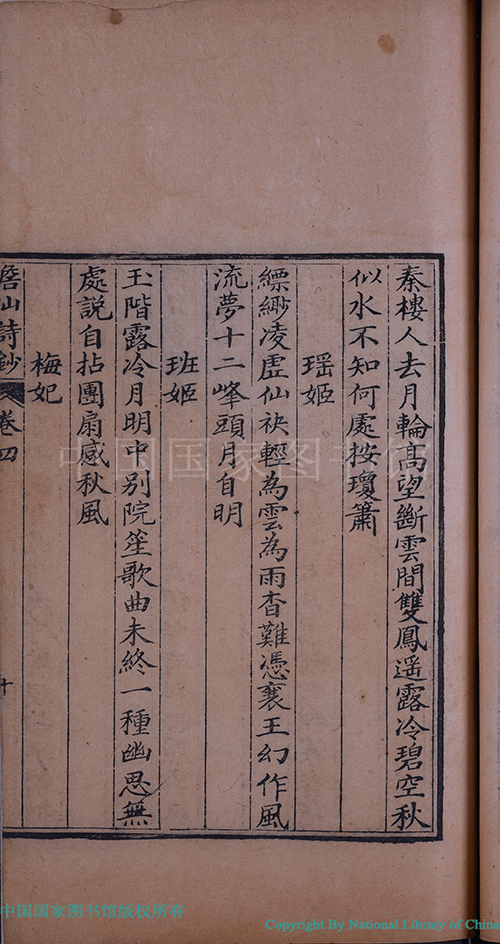 秦樓人去月輪高望斷雲間雙鳳遥露冷碧空秋
似水不知何處按瓊簫
瑶姬
縹緲凌虛仙袂輕為雲為雨杳難憑襄王幻作風
流夢十二峰頭月自明
班姬
玉階露冷月明中别院笙歌曲未終一種幽思無
處説自拈團扇感秋風
梅妃
詩鈔 卷四 十
中国国家图书馆
中国国家图书馆版权所有
Copyright By National Library of China